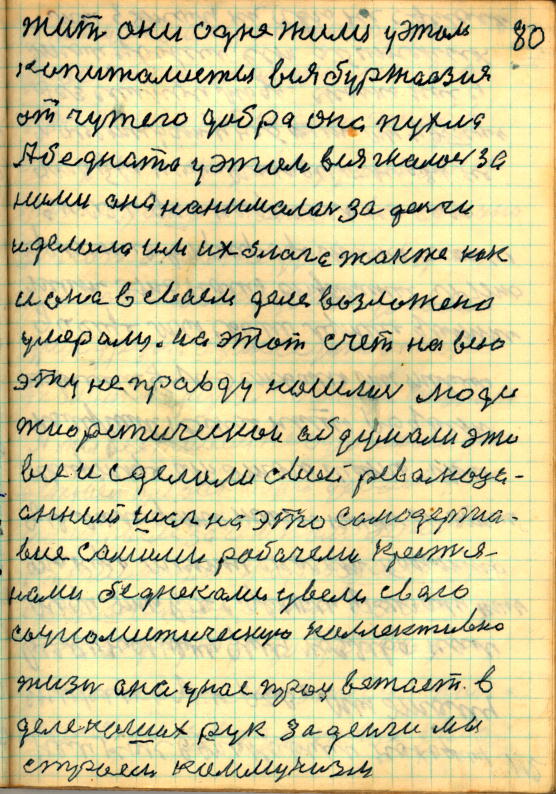 80
жит они одне жили у этом
копиталисты вся буржаозия
от чужего добра она пухла
А беднота у этом вся гналась за
ними она нанималась за денги
и делала им их блага также как
и она в своем деле возложено
умерали. на этот счет на всю
эту не правду нашлись люди
тиоретическои абдумали это
все и сделали свой ревалюцы-
онный шаг на это самодержа-
вие самими рабачеми крестя-
нами бедneками увели сваго
социолитическую коллективно
жизн она у нас процветает в
деле наших рук за денги мы
строем коммунизм